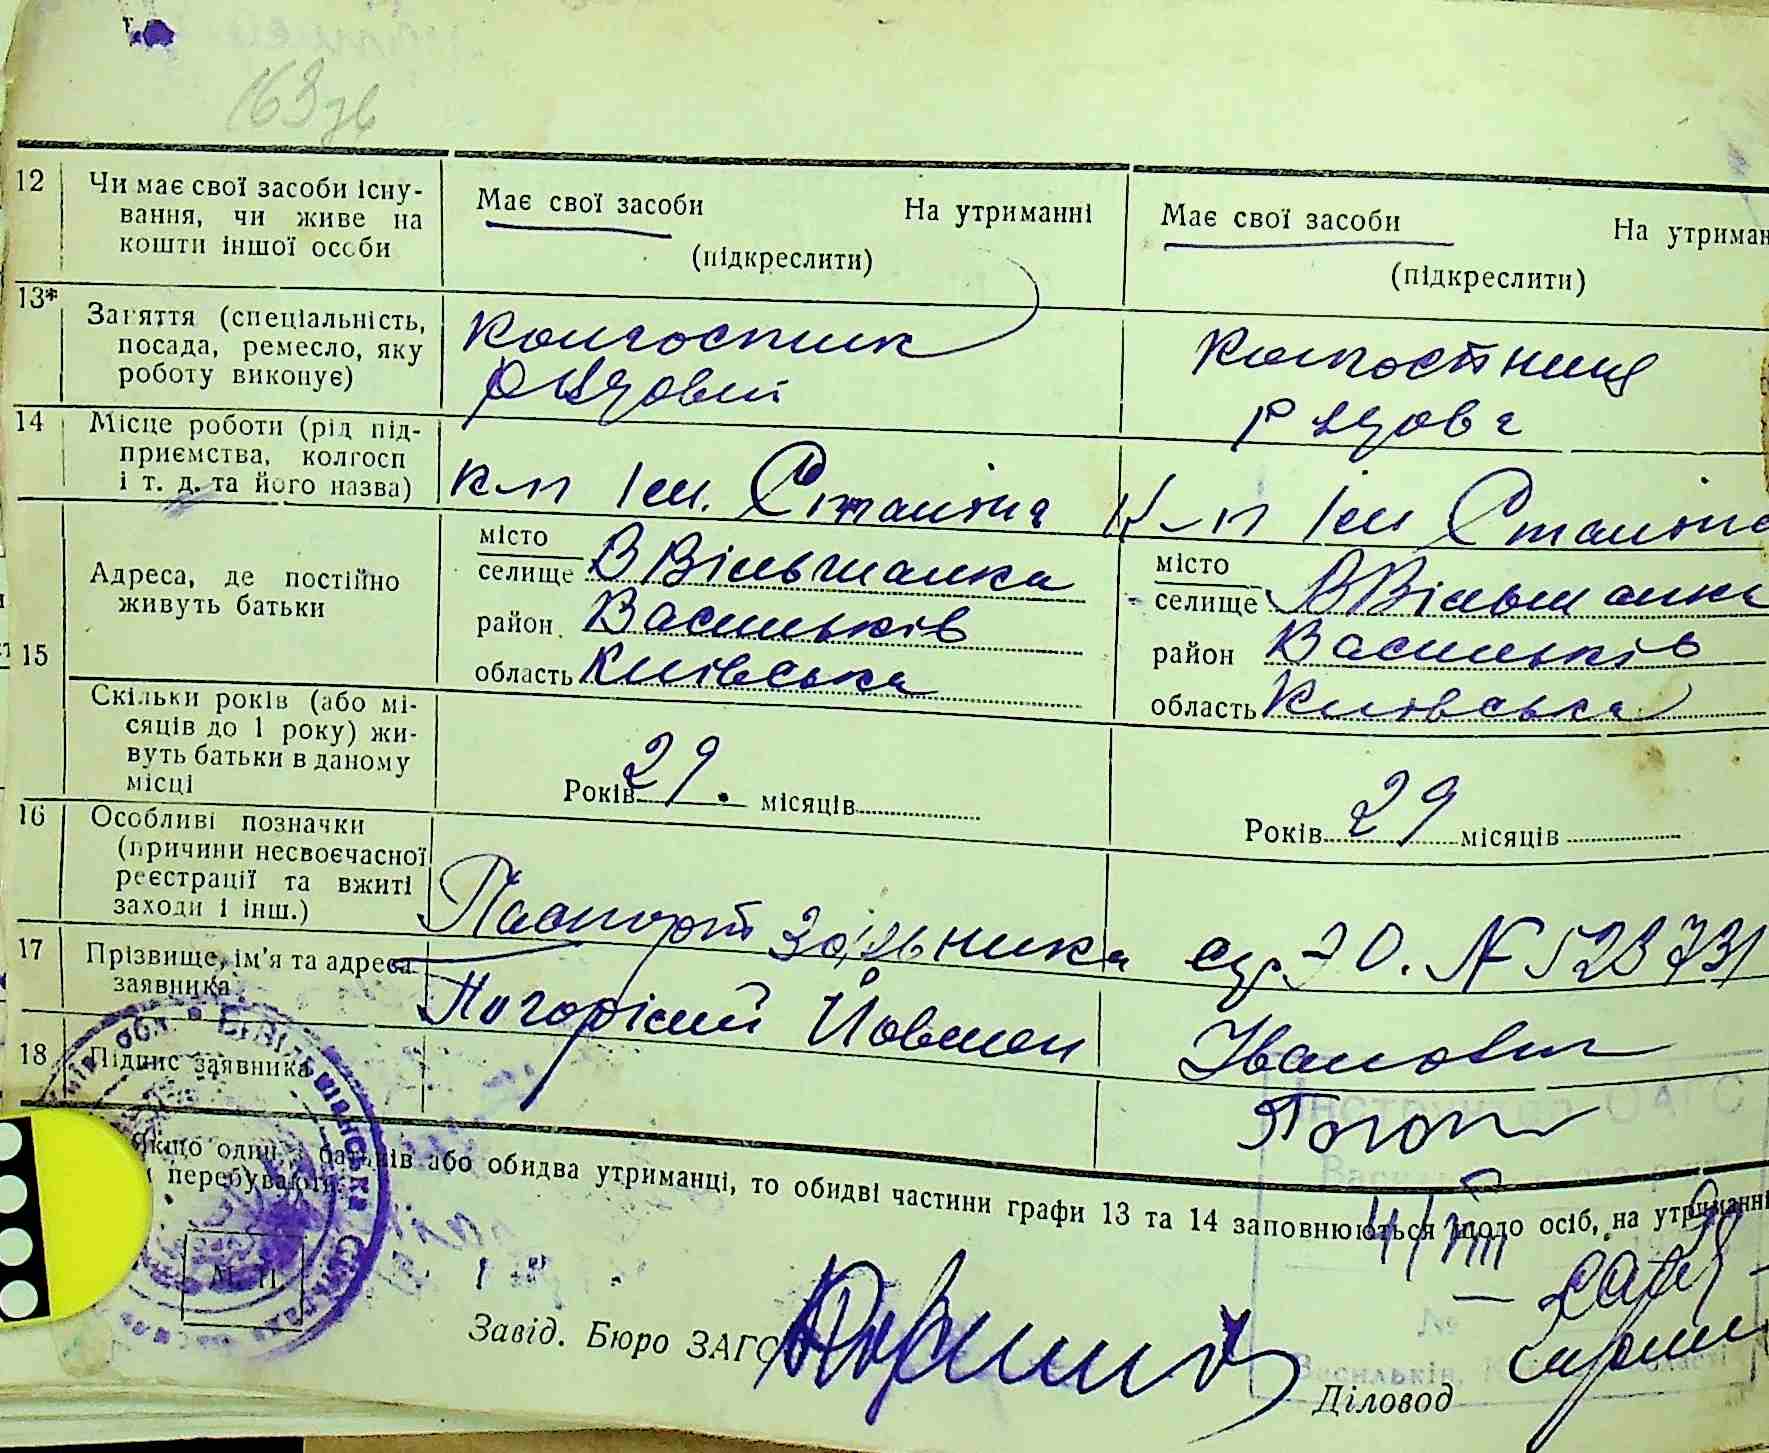 163 зв
12 Чи має свої засоби існу-
вання, чи живе на
кошти іншої особи
Має свої засоби На утриманні
(підкреслити)
Має свої засоби На утриман
(підкреслити)
13* Заняття (спеціальність,
посада, ремесло, яку
роботу виконує)
Колгоспник
рядовий
Колгоспниця
рядова
14 Місце роботи (рід під-
приємства, колгосп
і т. д. та його назва)
к-п Ім. Сталіна
к-п Ім Сталіна
15
Адреса, де постійно
живуть батьки
місто
селище В Вільшанка
район Васильків
область Київська
місто
селище В Вільшанка
район Васильків
область Київська
Скільки років (або мі-
сяців до 1 року) жи-
вуть батьки в даному
місці
Років 29 місяців
Років 29 місяців
16 Особливі позначки
(причини несвоєчасної
реєстрації та вжиті
заходи і інш.)
Паспорт
N 523731
17 Прізвище, ім'я та адреса
заявника
Погорілий Йовмен Іванович
18 Підпис заявника
Якщо один з батьків або обидва утриманці, то обидві частини графи 13 та 14 заповнюються щодо осіб, на утриманні
перебувають.
М. П.
Завід. Бюро ЗАГС
Діловод